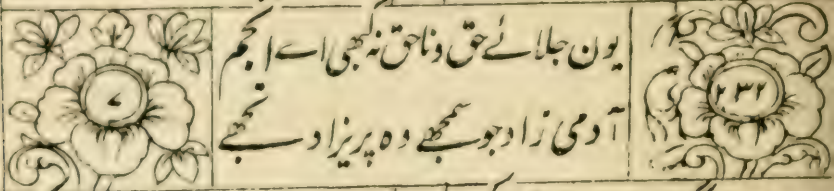 ۲۳۲
یون جلائے حق و ناحق نہ کبھی اے انجم
آدمی زاد جو سمجھے وہ پریزاد تجھے
۷